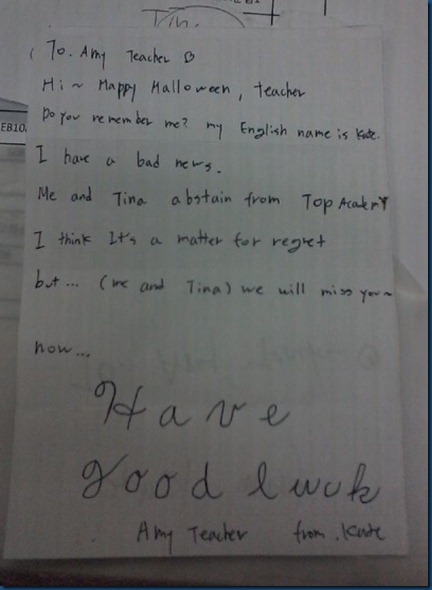 Tin.
EB10
To. Amy Teacher
Hi ~ Happy Halloween, teacher
Do you remember me? my English name is Kate.
I have a bad news.
Me and Tina abstain from Top Academy
I think It's a matter for regret
but... (me and Tina) we will miss you~
now...
Have
good lwuk
Amy Teacher from. Kate